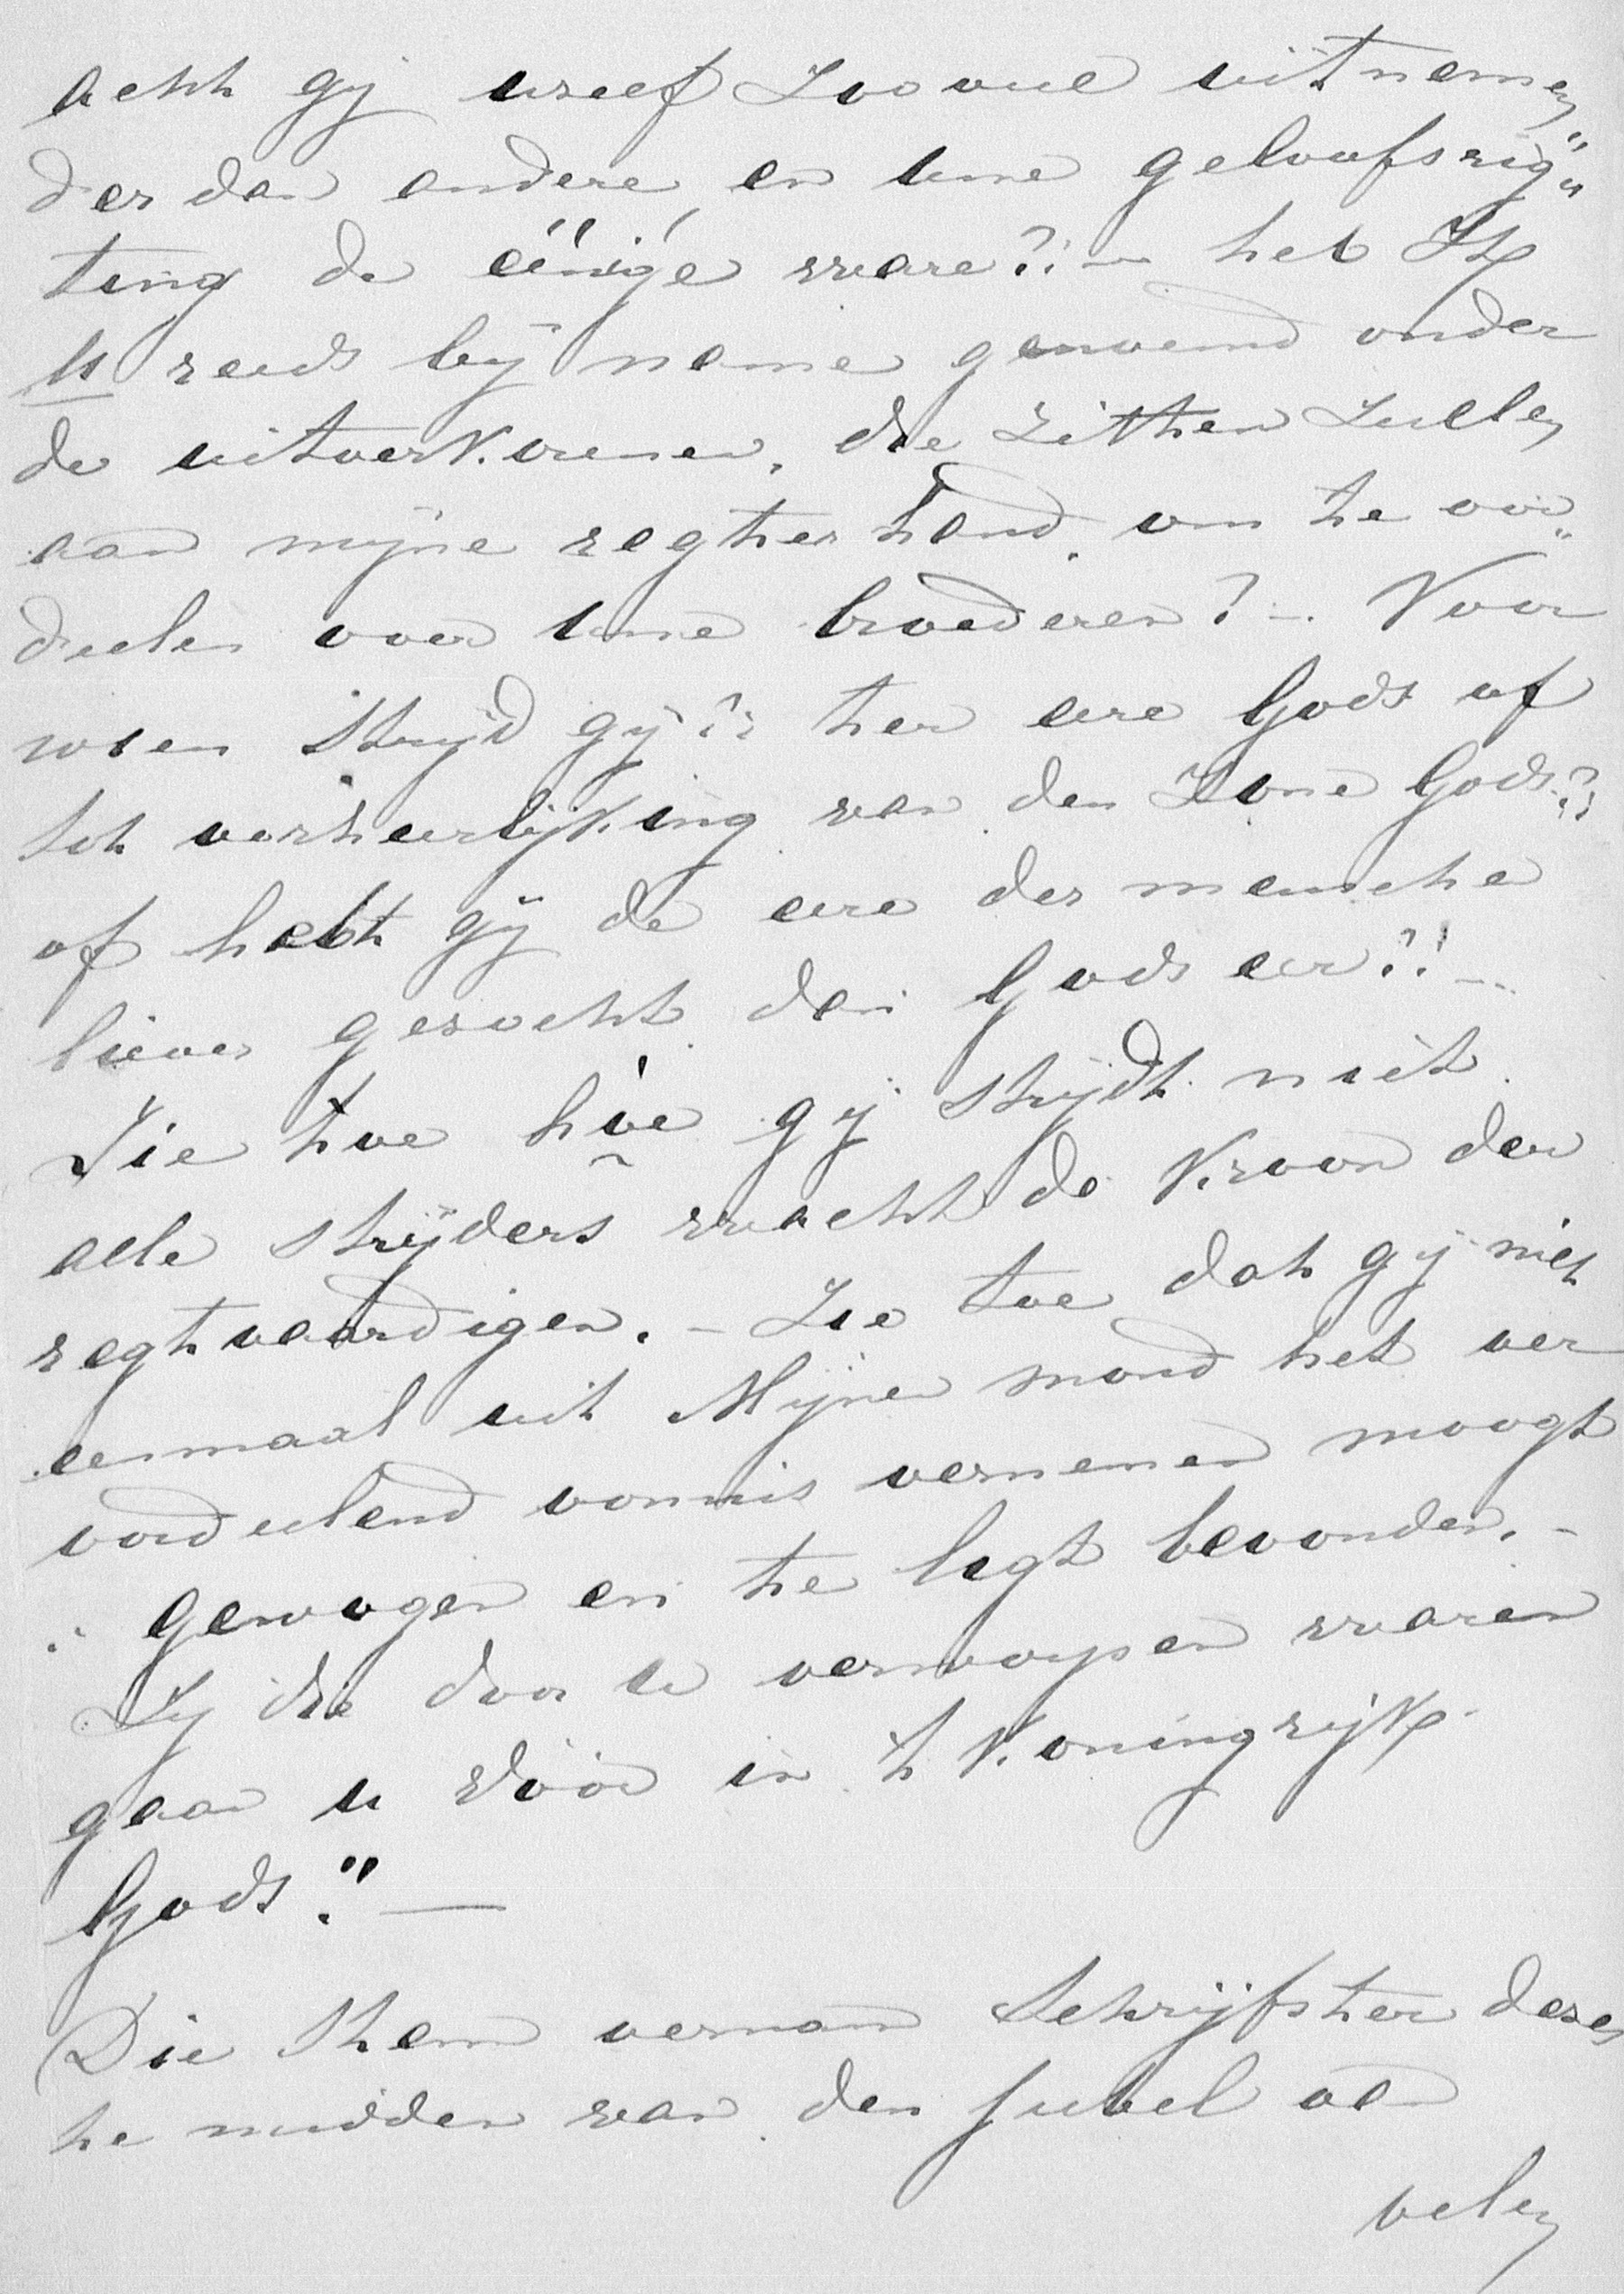 acht gij uzelf zoo veel uitnemen
der dan andere, en uwe geloofsrig„
ting de éénige ware?! — heb Ik
U reeds bij name genoemd onder
de uitverkorenen, die zitten zullen
aan mijne regter hand, om te oor„
deelen over uwe broederen? — Voor
wien strijd gij?! ter eere Gods of
tot verheerlijking van den Zone Gods?!
of hebt gij de eere der menschen
liever gezocht dan Gods eer?! —
Zie toe hóe gij strijdt niet
alle strijders wacht de Kroon der
regtvaardigen. — Zie toe dat gij niet
eenmaal uit Mijnen mond het ver
oordeelend vonnis vernemen moogt
„ gewogen en te ligt bevonden. —
Zij die door u verworpen waren
gaan u vóór in 't Koningrijk
Gods." —
Die stem vernam Schrijfster dezes
te midden van den jubel van
velen